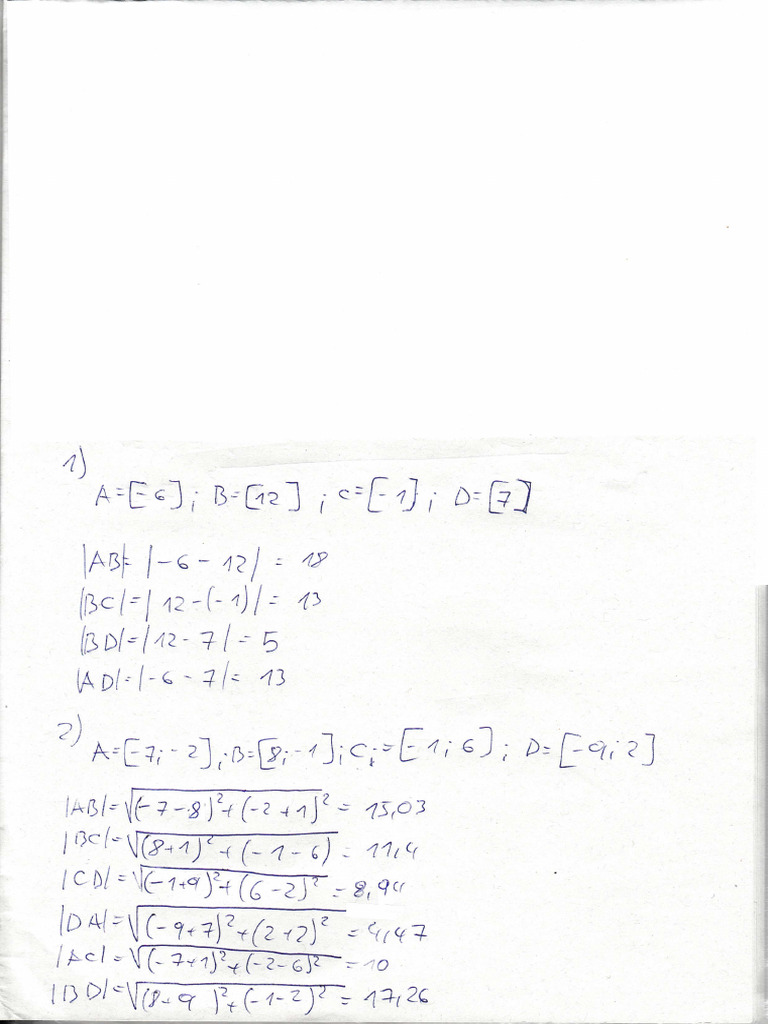 1)
A=[-6]; B=[12] ; C=[-1]; D=[7]
|AB|= |-6-12| = 18
|BC|=| 12-(-1)| = 13
|BD|=|12-7| = 5
|AD|=|-6-7|= 13
2)
A=[-7;-2]; B=[8;-1]; C;=[-1;6]; D=[-9;2]
|AB|=√(-7-8)²+(-2+1)² = 15,03
|BC|=√(8+1)²+(-1-6) = 11,4
|CD|=√(-1+9)²+(6-2)² = 8,94
|DA|=√(-9+7)²+(2+2)² = 4,47
|AC|=√(-7+1)²+(-2-6)² = 10
|BD|=√(8+9 )²+(-1-2)² = 17,26